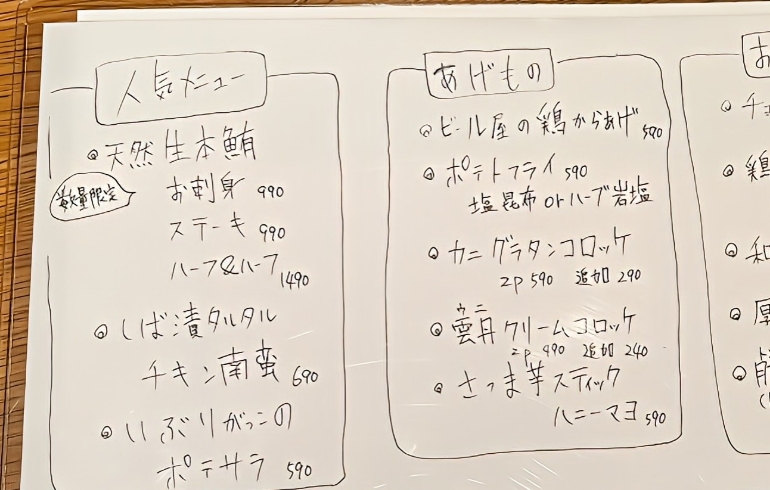 人気メニュー
天然生本鮪
数量限定
お刺身 990
ステーキ 990
ハーフ&ハーフ 1490
しば漬タルタル
チキン南蛮 690
いぶりがっこの
ポテサラ 590
あげもの
ビール屋の鶏からあげ 590
ポテトフライ 590
塩昆布orハーブ岩塩
カニグラタンコロッケ
2P 590 追加 290
ウニ
雲丹クリームコロッケ
2P 490 追加 240
さつま芋スティック
ハニーマヨ 590
お
チ
鶏
和
厚